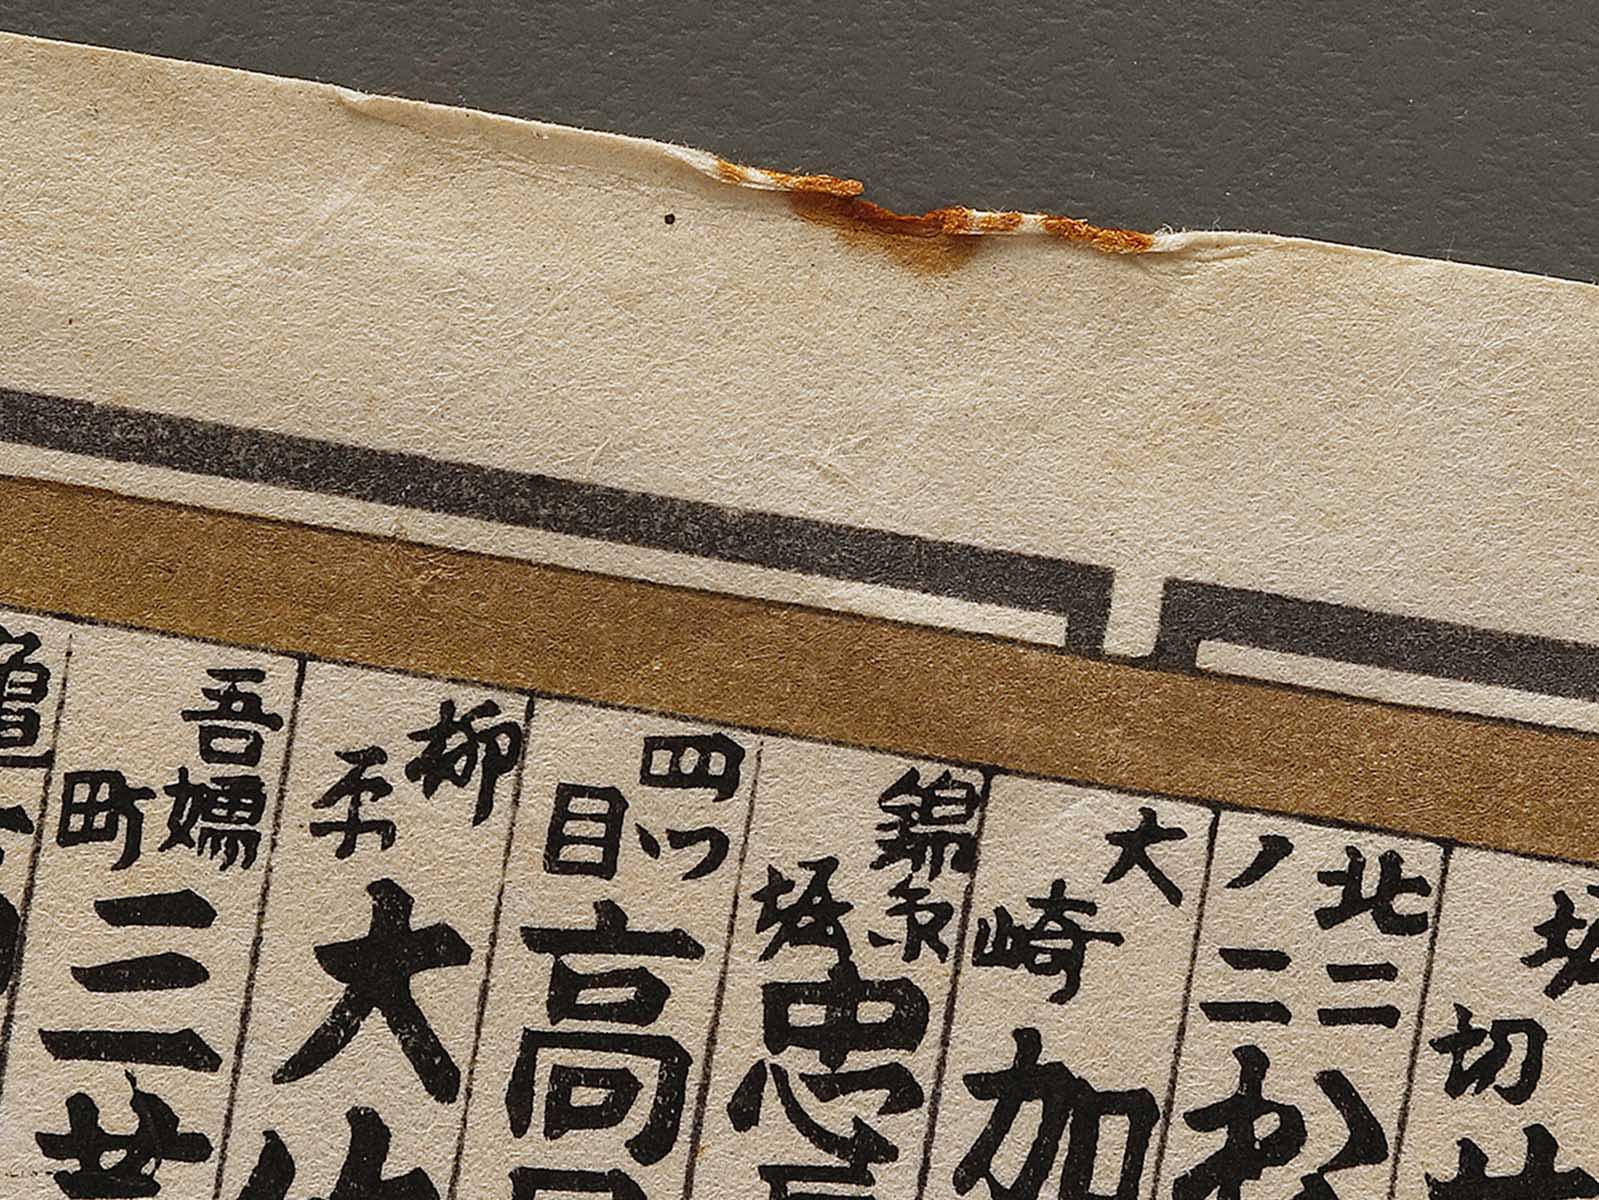 切
北二
ノ二
松
大
崎
加
錦糸
堀
忠
四ツ
目
高
柳
大
吾嬬
町
三
亀